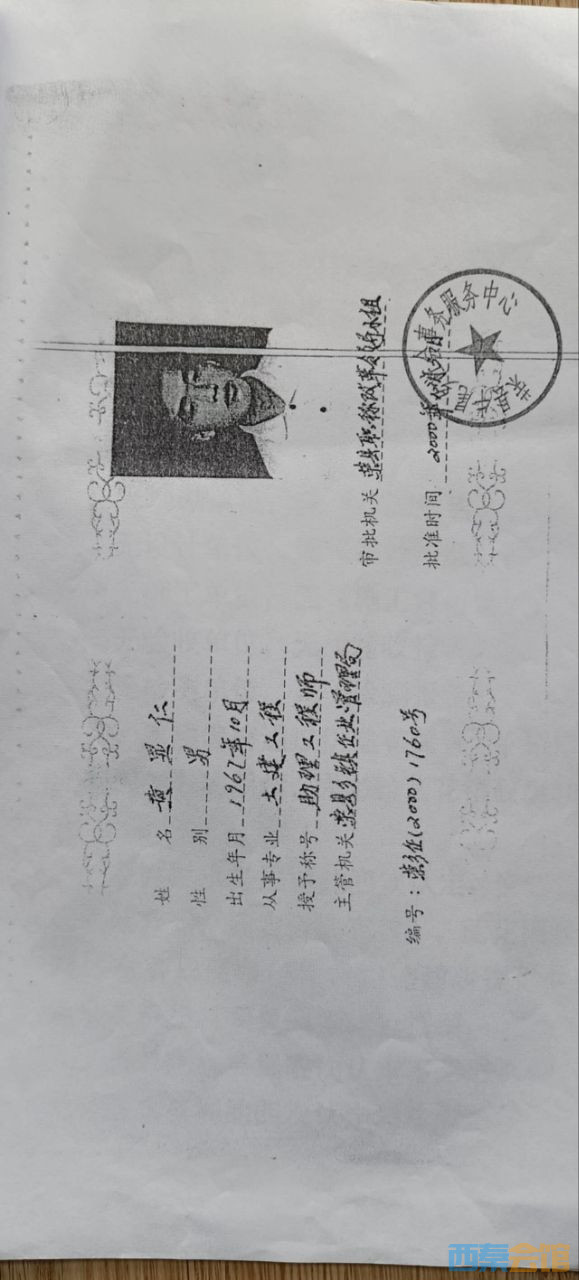 姓名 黄显仁
性别 男
出生年月 1967年10月
从事专业 土建工程
授予称号 助理工程师
主管机关 荣县乡镇企业管理局
编号:荣乡企(2000)1760号
审批机关 荣县职称改革领导小组
批准时间 2000年
事务服务中心
西秦会馆